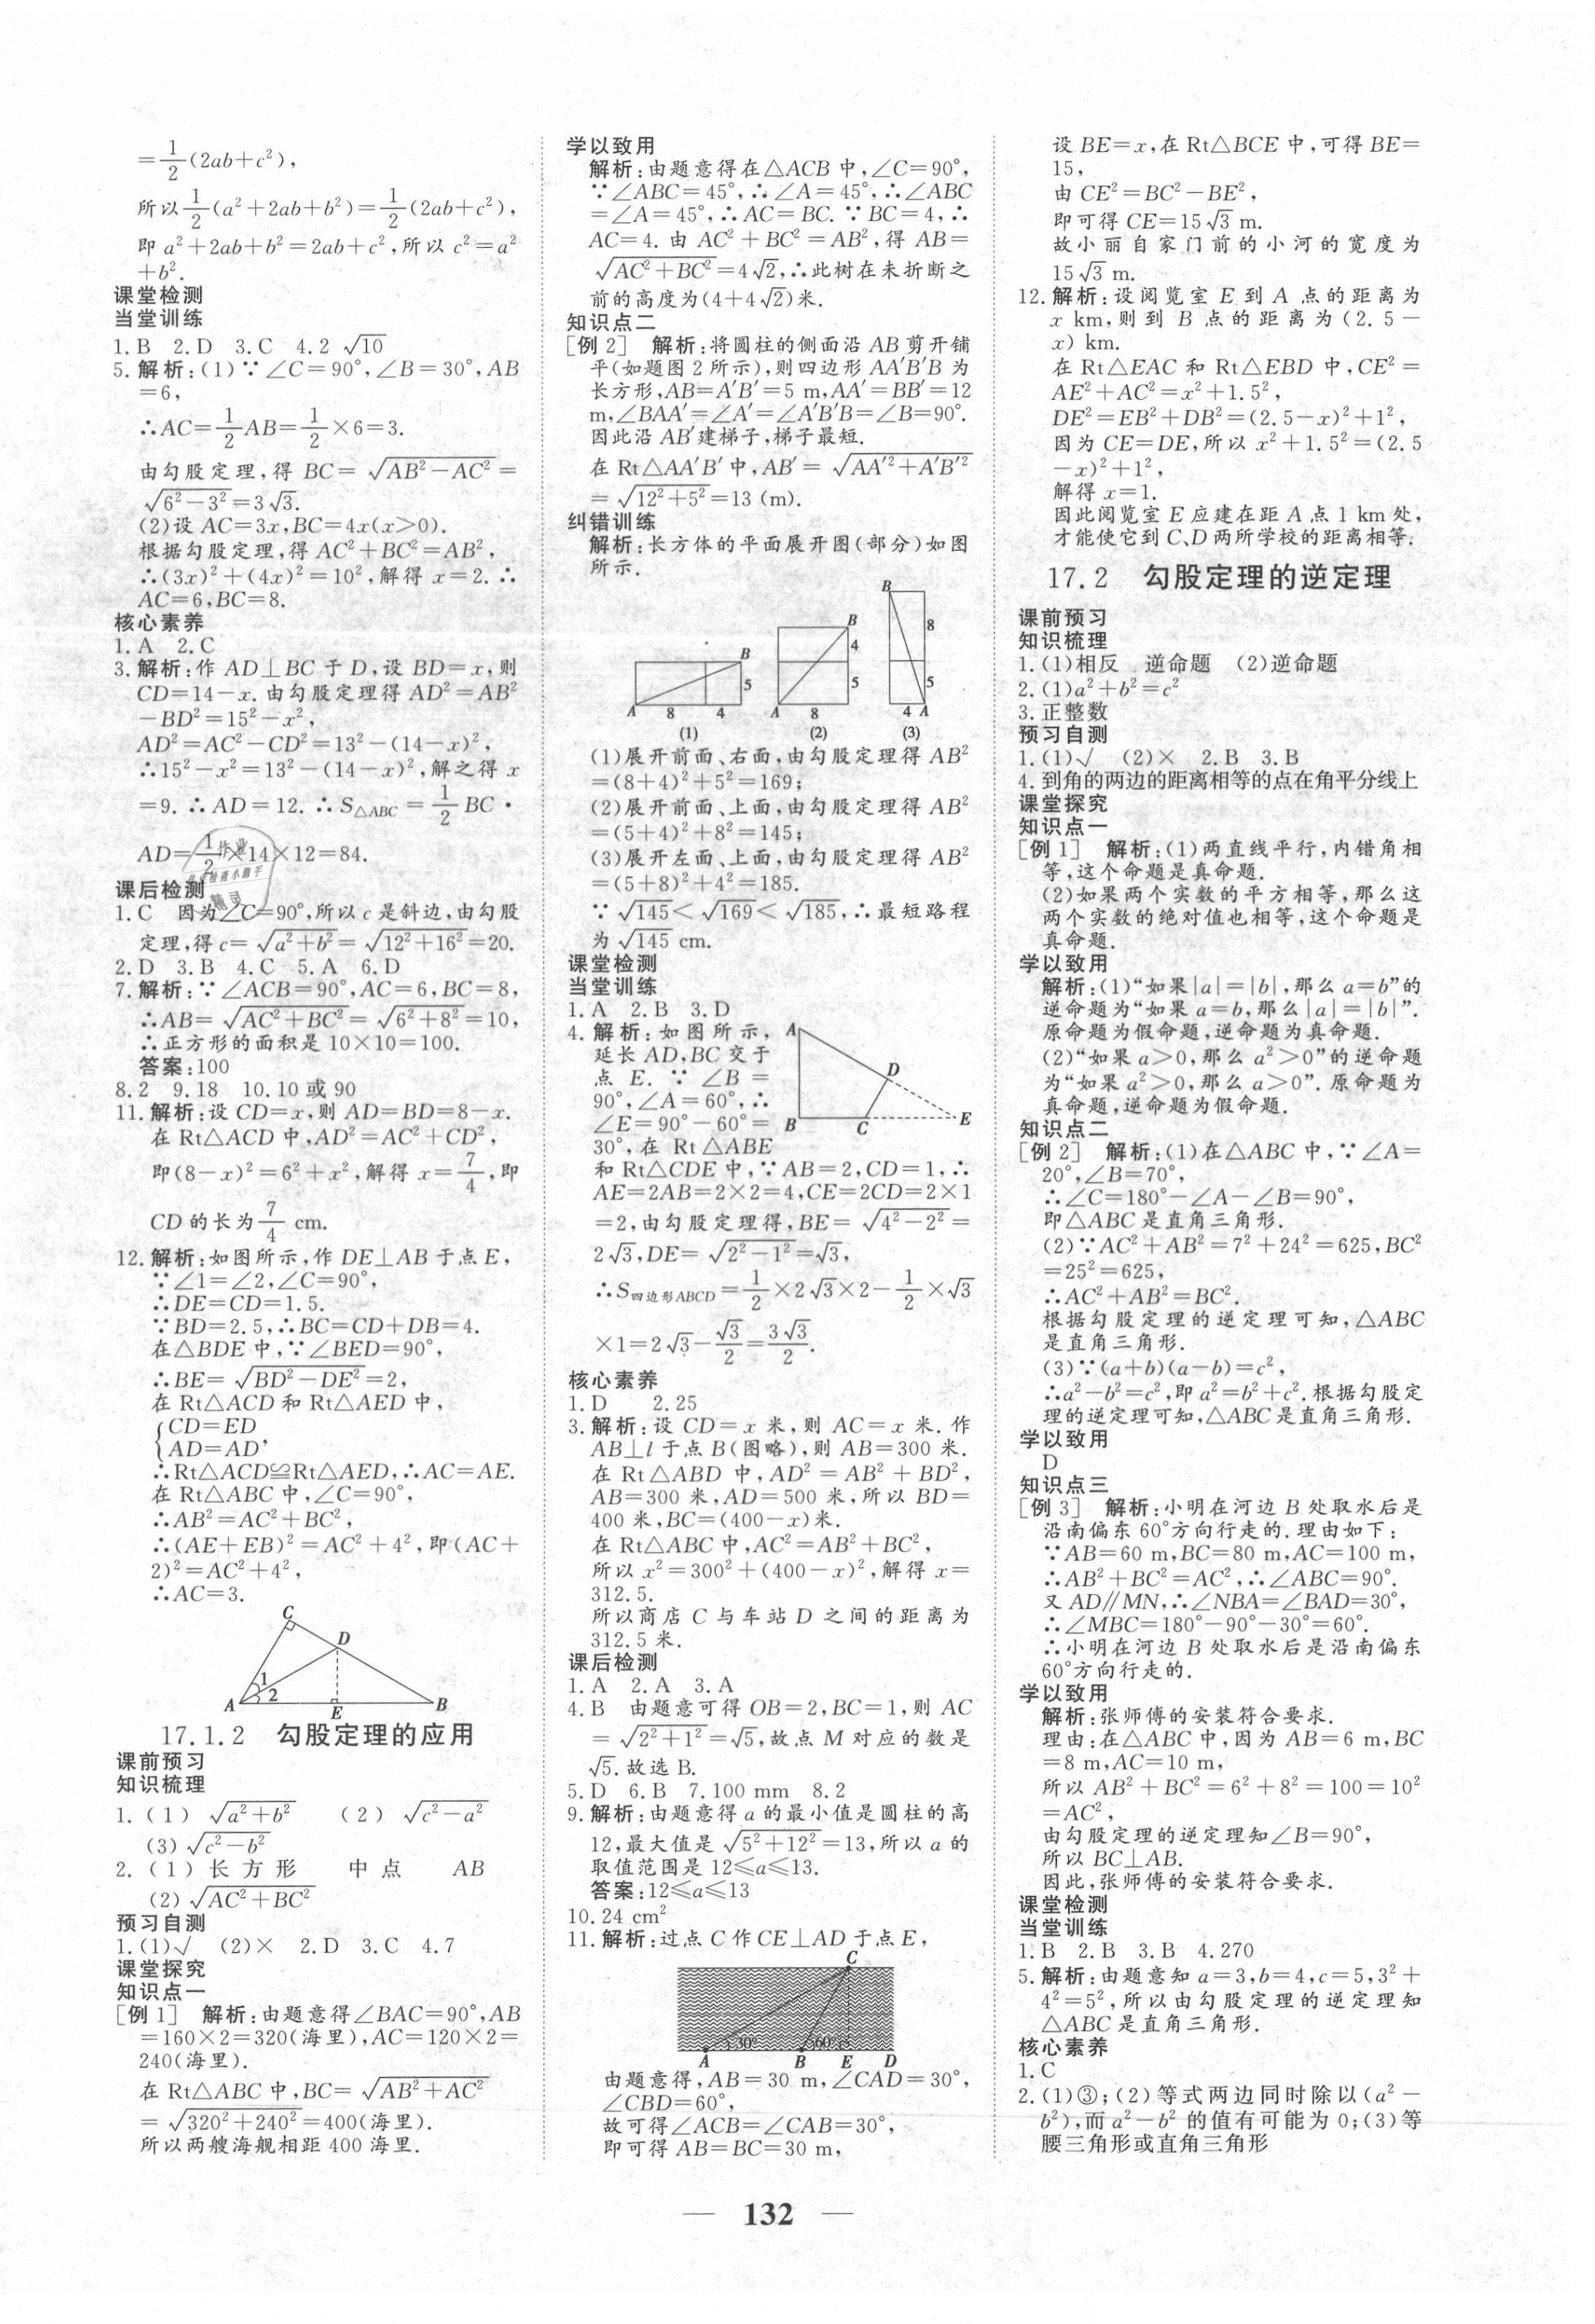 =1/2(2ab+c²),
所以1/2(a²+2ab+b²)=1/2(2ab+c²),
即 a²+2ab+b²=2ab+c²,所以 c²=a²
+b².
课堂检测
当堂训练
1.B 2.D 3.C 4.2 √10
5.解析:(1)∵∠C=90°,∠B=30°,AB
=6,
∴AC=1/2AB=1/2×6=3.
由勾股定理,得 BC=√(AB²−AC²)=
√(6²−3²)=3√3.
(2)设 AC=3x,BC=4x(x>0).
根据勾股定理,得 AC²+BC²=AB²,
∴(3x)²+(4x)²=10²,解得 x=2.∴
AC=6,BC=8.
核心素养
1.A 2.C
3.解析:作 AD⊥BC 于 D,设 BD=x,则
CD=14−x.由勾股定理得 AD²=AB²
−BD²=15²−x²,
AD²=AC²−CD²=13²−(14−x)²,
∴15²−x²=13²−(14−x)²,解之得 x
=9.∴AD=12.∴S△ABC=1/2 BC·
AD=1/2×14×12=84.
课后检测
1.C 因为∠C=90°,所以 c 是斜边,由勾股
定理,得 c=√(a²+b²)=√(12²+16²)=20.
2.D 3.B 4.C 5.A 6.D
7.解析:∵∠ACB=90°,AC=6,BC=8,
∴AB=√(AC²+BC²)=√(6²+8²)=10,
∴正方形的面积是 10×10=100.
答案:100
8.2 9.18 10.10 或 90
11.解析:设 CD=x,则 AD=BD=8−x.
在 Rt△ACD 中,AD²=AC²+CD²,
即(8−x)²=6²+x²,解得 x=7/4,即
CD 的长为7/4 cm.
12.解析:如图所示,作 DE⊥AB 于点 E,
∵∠1=∠2,∠C=90°,
∴DE=CD=1.5.
∵BD=2.5,∴BC=CD+DB=4.
在△BDE 中,∵∠BED=90°,
∴BE=√(BD²−DE²)=2,
在 Rt△ACD 和 Rt△AED 中,
{CD=ED
AD=AD,
∴Rt△ACD≌Rt△AED,∴AC=AE.
在 Rt△ABC 中,∠C=90°,
∴AB²=AC²+BC²,
∴(AE+EB)²=AC²+4²,即(AC+
2)²=AC²+4²,
∴AC=3.
C
D
1
2
A
E
B
17.1.2 勾股定理的应用
课前预习
知识梳理
1.(1)√(a²+b²) (2)√(c²−a²)
(3)√(c²−b²)
2.(1)长方形 中点 AB
(2)√(AC²+BC²)
预习自测
1.(1)√ (2)× 2.D 3.C 4.7
课堂探究
知识点一
[例 1] 解析:由题意得∠BAC=90°,AB
=160×2=320(海里),AC=120×2=
240(海里).
在 Rt△ABC 中,BC=√(AB²+AC²)
=√(320²+240²)=400(海里).
所以两艘海舰相距 400 海里.
学以致用
解析:由题意得在△ACB 中,∠C=90°,
∵∠ABC=45°,∴∠A=45°,∴∠ABC
=∠A=45°,∴AC=BC.∵BC=4,∴
AC=4.由 AC²+BC²=AB²,得 AB=
√(AC²+BC²)=4√2,∴此树在未折断之
前的高度为(4+4√2)米.
知识点二
[例 2] 解析:将圆柱的侧面沿 AB 剪开铺
平(如题图 2 所示),则四边形 AA′B′B 为
长方形,AB=A′B′=5 m,AA′=BB′=12
m,∠BAA′=∠A′=∠A′B′B=∠B=90°.
因此沿 AB′建梯子,梯子最短.
在 Rt△AA′B′中,AB′=√(AA′²+A′B′²)
=√(12²+5²)=13 (m).
纠错训练
解析:长方体的平面展开图(部分)如图
所示.
B
5
A 8 4
(1)
B
4
5
A 8
(2)
B
8
5
4 A
(3)
(1)展开前面、右面,由勾股定理得 AB²
=(8+4)²+5²=169;
(2)展开前面、上面,由勾股定理得 AB²
=(5+4)²+8²=145;
(3)展开左面、上面,由勾股定理得 AB²
=(5+8)²+4²=185.
∵√145<√169<√185,∴最短路程
为√145 cm.
课堂检测
当堂训练
1.A 2.B 3.D
4.解析:如图所示,
延长 AD,BC 交于
点 E.∵∠B=
90°,∠A=60°,∴
∠E=90°−60°=
30°,在 Rt△ABE
A
D
B
C
E
和 Rt△CDE 中,∵AB=2,CD=1,∴
AE=2AB=2×2=4,CE=2CD=2×1
=2,由勾股定理得,BE=√(4²−2²)=
2√3,DE=√(2²−1²)=√3,
∴S四边形ABCD=1/2×2√3×2−1/2×√3
×1=2√3−√3/2=3√3/2.
核心素养
1.D 2.25
3.解析:设 CD=x 米,则 AC=x 米.作
AB⊥l 于点 B(图略),则 AB=300 米.
在 Rt△ABD 中,AD²=AB²+BD²,
AB=300 米,AD=500 米,所以 BD=
400 米,BC=(400−x)米.
在 Rt△ABC 中,AC²=AB²+BC²,
所以 x²=300²+(400−x)²,解得 x=
312.5.
所以商店 C 与车站 D 之间的距离为
312.5 米.
课后检测
1.A 2.A 3.A
4.B 由题意可得 OB=2,BC=1,则 AC
=√(2²+1²)=√5,故点 M 对应的数是
√5.故选 B.
5.D 6.B 7.100 mm 8.2
9.解析:由题意得 a 的最小值是圆柱的高
12,最大值是√(5²+12²)=13,所以 a 的
取值范围是 12≤a≤13.
答案:12≤a≤13
10.24 cm²
11.解析:过点 C 作 CE⊥AD 于点 E,
C
30°
60°
A B E D
由题意得,AB=30 m,∠CAD=30°,
∠CBD=60°,
故可得∠ACB=∠CAB=30°,
即可得 AB=BC=30 m,
设 BE=x,在 Rt△BCE 中,可得 BE=
15,
由 CE²=BC²−BE²,
即可得 CE=15√3 m.
故小丽自家门前的小河的宽度为
15√3 m.
12.解析:设阅览室 E 到 A 点的距离为
x km,则到 B 点的距离为(2.5−
x) km.
在 Rt△EAC 和 Rt△EBD 中,CE²=
AE²+AC²=x²+1.5²,
DE²=EB²+DB²=(2.5−x)²+1²,
因为 CE=DE,所以 x²+1.5²=(2.5
−x)²+1²,
解得 x=1.
因此阅览室 E 应建在距 A 点 1 km 处,
才能使它到 C、D 两所学校的距离相等.
17.2 勾股定理的逆定理
课前预习
知识梳理
1.(1)相反 逆命题 (2)逆命题
2.(1)a²+b²=c²
3.正整数
预习自测
1.(1)√ (2)× 2.B 3.B
4.到角的两边的距离相等的点在角平分线上
课堂探究
知识点一
[例 1] 解析:(1)两直线平行,内错角相
等,这个命题是真命题.
(2)如果两个实数的平方相等,那么这
两个实数的绝对值也相等,这个命题是
真命题.
学以致用
解析:(1)“如果|a|=|b|,那么 a=b”的
逆命题为“如果 a=b,那么|a|=|b|”.
原命题为假命题,逆命题为真命题.
(2)“如果 a>0,那么 a²>0”的逆命题
为“如果 a²>0,那么 a>0”.原命题为
真命题,逆命题为假命题.
知识点二
[例 2] 解析:(1)在△ABC 中,∵∠A=
20°,∠B=70°,
∴∠C=180°−∠A−∠B=90°,
即△ABC 是直角三角形.
(2)∵AC²+AB²=7²+24²=625,BC²
=25²=625,
∴AC²+AB²=BC².
根据勾股定理的逆定理可知,△ABC
是直角三角形.
(3)∵(a+b)(a−b)=c²,
∴a²−b²=c²,即 a²=b²+c².根据勾股定
理的逆定理可知,△ABC 是直角三角形.
学以致用
D
知识点三
[例 3] 解析:小明在河边 B 处取水后是
沿南偏东 60°方向行走的.理由如下:
∵AB=60 m,BC=80 m,AC=100 m,
∴AB²+BC²=AC²,∴∠ABC=90°.
又 AD∥MN,∴∠NBA=∠BAD=30°,
∴∠MBC=180°−90°−30°=60°.
∴小明在河边 B 处取水后是沿南偏东
60°方向行走的.
学以致用
解析:张师傅的安装符合要求.
理由:在△ABC 中,因为 AB=6 m,BC
=8 m,AC=10 m,
所以 AB²+BC²=6²+8²=100=10²
=AC²,
由勾股定理的逆定理知∠B=90°,
所以 BC⊥AB.
因此,张师傅的安装符合要求.
课堂检测
当堂训练
1.B 2.B 3.B 4.270
5.解析:由题意知 a=3,b=4,c=5,3²+
4²=5²,所以由勾股定理的逆定理知
△ABC 是直角三角形.
核心素养
1.C
2.(1)③;(2)等式两边同时除以(a²−
b²),而 a²−b² 的值有可能为 0;(3)等
腰三角形或直角三角形
— 132 —